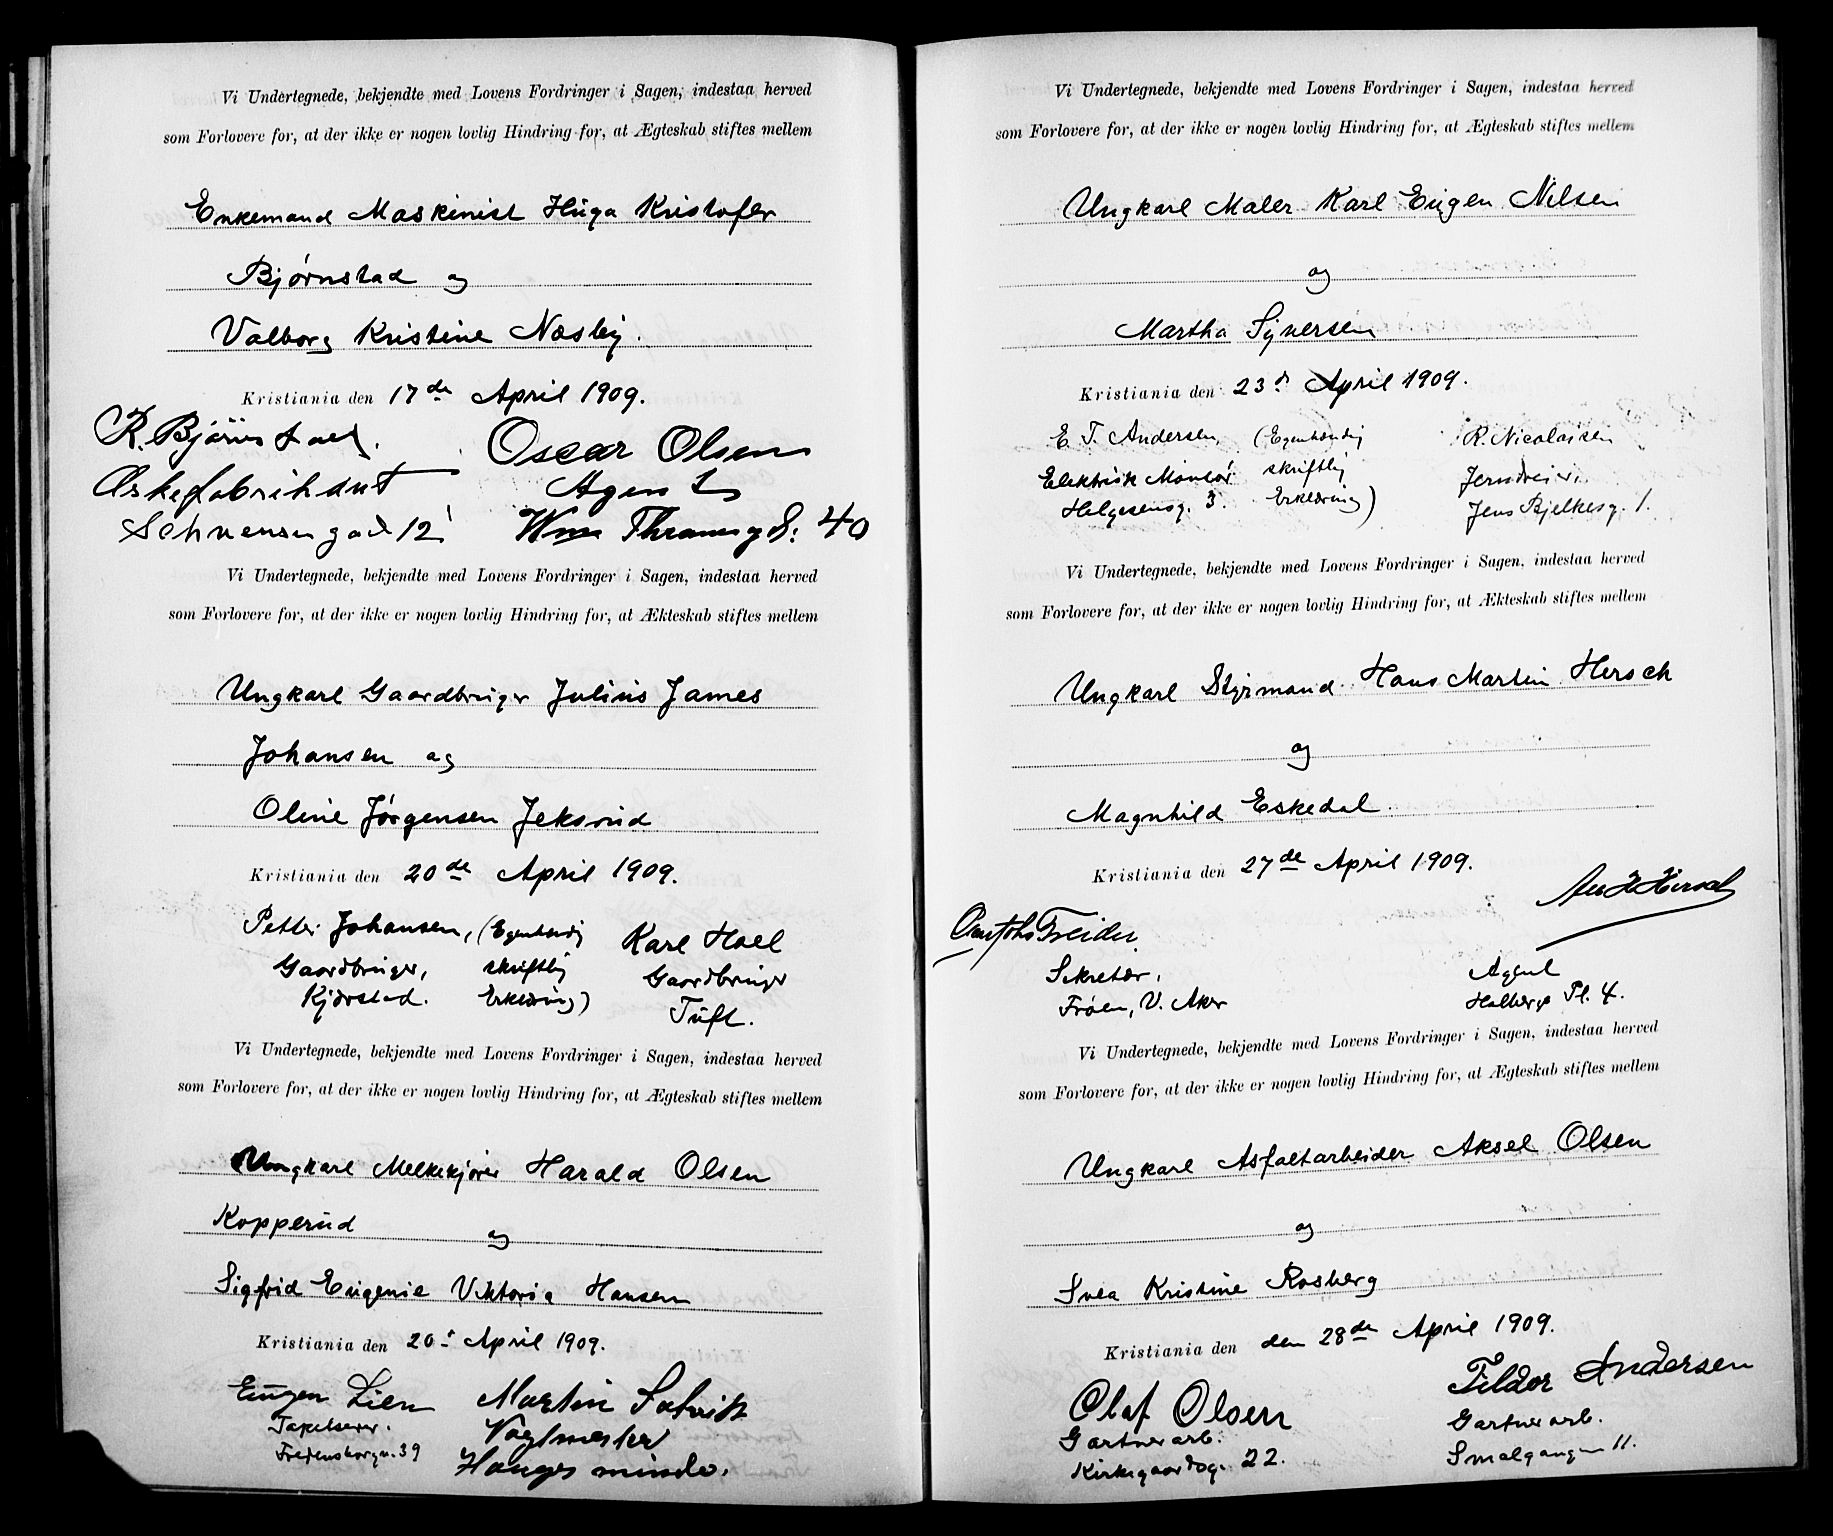 Vi Undertegnede, bekjendte med Lovens Fordringer i Sagen, indestaa herved
som Forlovere for, at der ikke er nogen lovlig Hindring for, at Ægteskab stiftes mellem
Enkemand Maskinist Hugo Kristofer
Bjørnstad og
Valborg Kristine Næsby.
Kristiania den 17de April 1909.
R. Bjørnstad. Oscar Olsen
Æskefabrikant Agent
gade 12 Wm Thranesgd: 40
Vi Undertegnede, bekjendte med Lovens Fordringer i Sagen, indestaa herved
som Forlovere for, at der ikke er nogen lovlig Hindring for, at Ækteskab stiftes mellem
Ungkarl Gaardbruger Julius James
Johansen og
Oline Jørgensen Jeksrud
Kristiania den 20de April 1909.
Petter Johansen, (Egenhændig Karl Hoel
Gaardbruger, skriftlig Gaardbruger
Kjørstad. Erklæring) Tuft.
Vi Undertegnede, bekjendte med Lovens Fordringer i Sagen, indestaa herved
som Forlovere for, at der ikke er nogen lovlig Hindring for, at Ægteskab stiftes mellem
Ungkarl Melkekjører Harald Olsen
Kopperud og
Sigfrid Eugenie Viktoria Hansen
Kristiania den 20d April 1909.
Eugen Lien Martin
Tapetserer. Vognmester
Fredensborgv. 39 Hauges minde.
Vi Undertegnede, bekjendte med Lovens Fordringer i Sagen, indestaa herved
som Forlovere for, at der ikke er nogen lovlig Hindring for, at Ægteskab stiftes mellem
Ungkarl Maler Karl Eugen Nilsen
og
Martha Syversen
Kristiania den 23d April 1909.
E. T. Andersen, (Egenhændig R. Nicolaisen
Elektrisk Montør skriftlig Jerndreier,
Helgesensg. 3. Erklæring) Jens Bjelkesg. 1.
Vi Undertegnede, bekjendte med Lovens Fordringer i Sagen, indestaa herved
som Forlovere for, at der ikke er nogen lovlig Hindring for, at Ækteskab stiftes mellem
Ungkarl Styrmand Hans Martin Hersch
og
Magnhild Eskedal.
Kristiania den 27de April 1909.
Hersch
Sekretær, Agent
Frøen, V. Aker Holbergs Pl. 4.
Vi Undertegnede, bekjendte med Lovens Fordringer i Sagen, indestaa herved
som Forlovere for, at der ikke er nogen lovlig Hindring for, at Ægteskab stiftes mellem
Ungkarl Asfaltarbeider Aksel Olsen
og
Svea Kristine Rosberg
Kristiania den den 28de April 1909.
Olaf Olsen Tildor Andersen
Gartnerarb. Gartnerarb.
Kirkegaardsg. 22. Smalgangen 11.